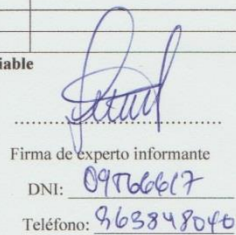 iable
Firma de experto informante
DNI:
Teléfono: 963848040